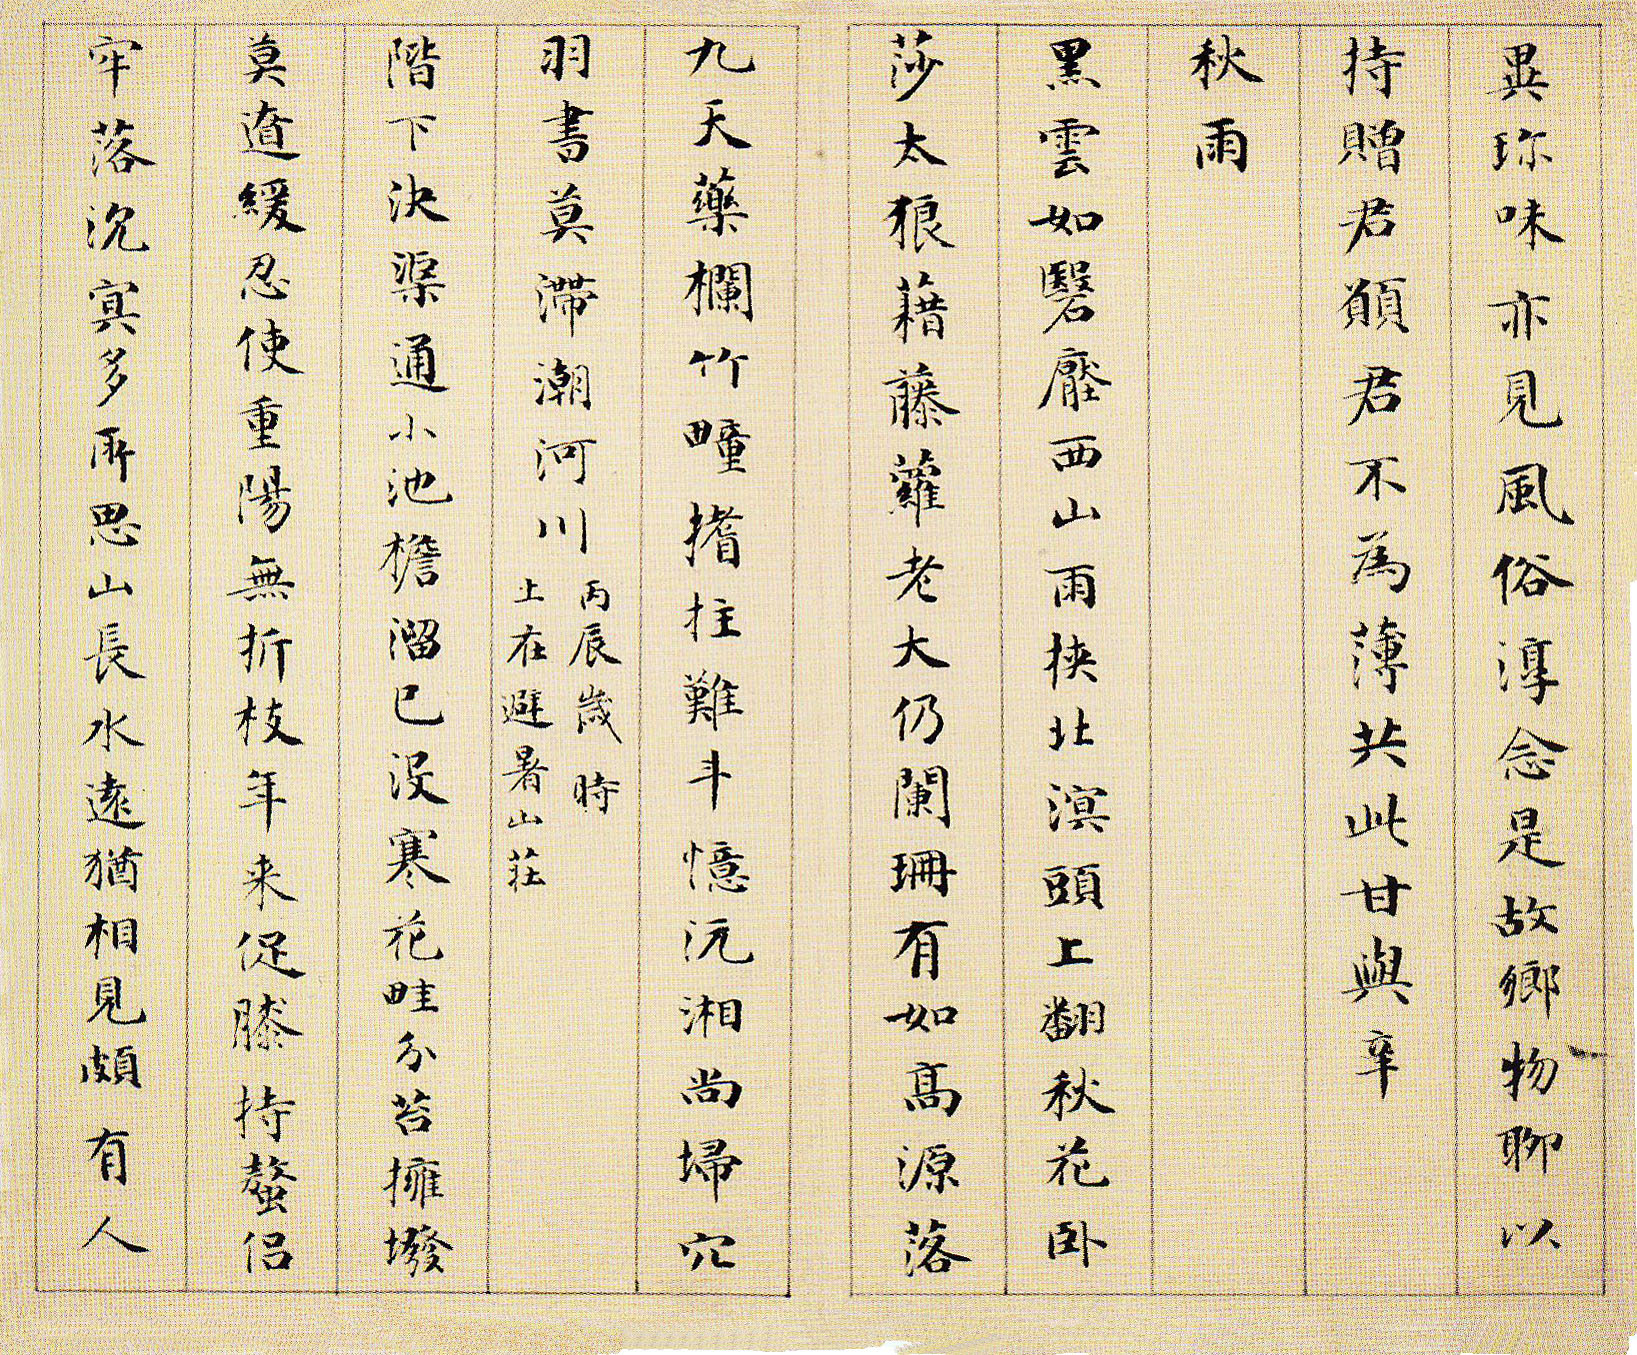 異珎味亦見風俗淳念是故鄉物聊以
持贈君願君不為薄共此甘與辛
秋雨
黑雲如翳壓西山雨挾北溟頭上翻秋花卧
莎太狼藉藤蘿老大仍闌珊有如高源落
九天藥欄竹疃搘拄難斗憶沅湘尚埽穴
羽書莫滯潮河川
丙辰歲時
上在避暑山莊
階下決渠通小池檐溜已没寒花畦分苔擁撥
莫道緩忍使重陽無折枝年来促膝持螯侣
牢落沉冥多所思山長水遠猶相見頗有人